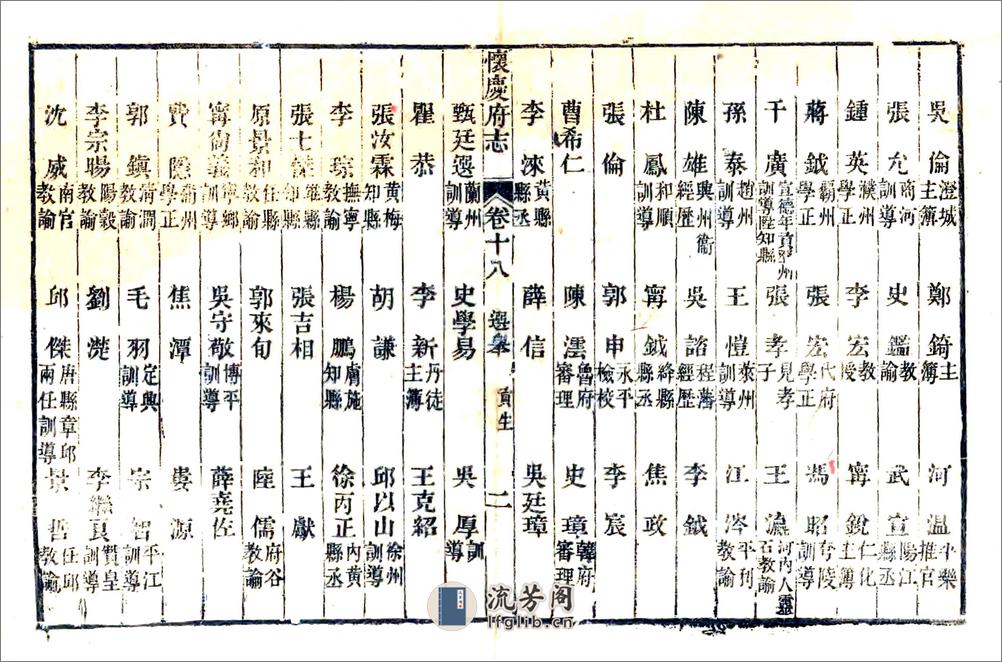 吳倫 澄城主簿 鄭錡 主簿 河温 平樂推官
張允 商河訓導 史鑑 教諭 武宣 陽江縣丞
鍾英 濮州學正 李宏 教授 甯銳 仁化主簿
蔣鉞 霸州學正 張宏 代府學正 馮昭 陵
干廣 宣德年貢 州訓導陞知縣 張孝 見孝子 王瀛 河内人靈石教諭
孫泰 趙州訓導 王愷 萊州訓導 江涔 平利教諭
陳雄 興州衞經歷 吳諮 程藩經歷 李鉞
杜鳳 和順訓導 甯鉞 絳縣縣丞 焦政
張倫 郭申 永平檢校 李宸
曹希仁 陳澐 魯府審理 史璋 韓府審理
李淶 黃縣縣丞 薛信 吳廷璋
懷慶府志 卷十八 選舉 貢生 二
甄廷選 蘭州訓導 史學易 吳厚 訓導
瞿恭 李新 丹徒主簿 王克紹
張汝霖 黃梅知縣 胡謙 邱以山 徐州訓導
李琮 撫寧教諭 楊鵬 膚施知縣 徐丙正 内黃縣丞
張士 縣知縣 張吉相 王獻
原景和 任縣教諭 郭來旬 陸儒 府谷教諭
甯尚義 寧鄉訓導 吳守敬 博平訓導 薛堯佐
費隱 州學正 焦潭 婁源
郭鎮 清澗教諭 毛羽 定興訓導 宗智 平江訓導
李宗暘 陽穀教諭 劉漟 李繼良 贊皇訓導
沈威 南宮教諭 邱傑 唐縣章邱兩任訓導 景哲 任邱教諭
流芳阁
lfglib.cn